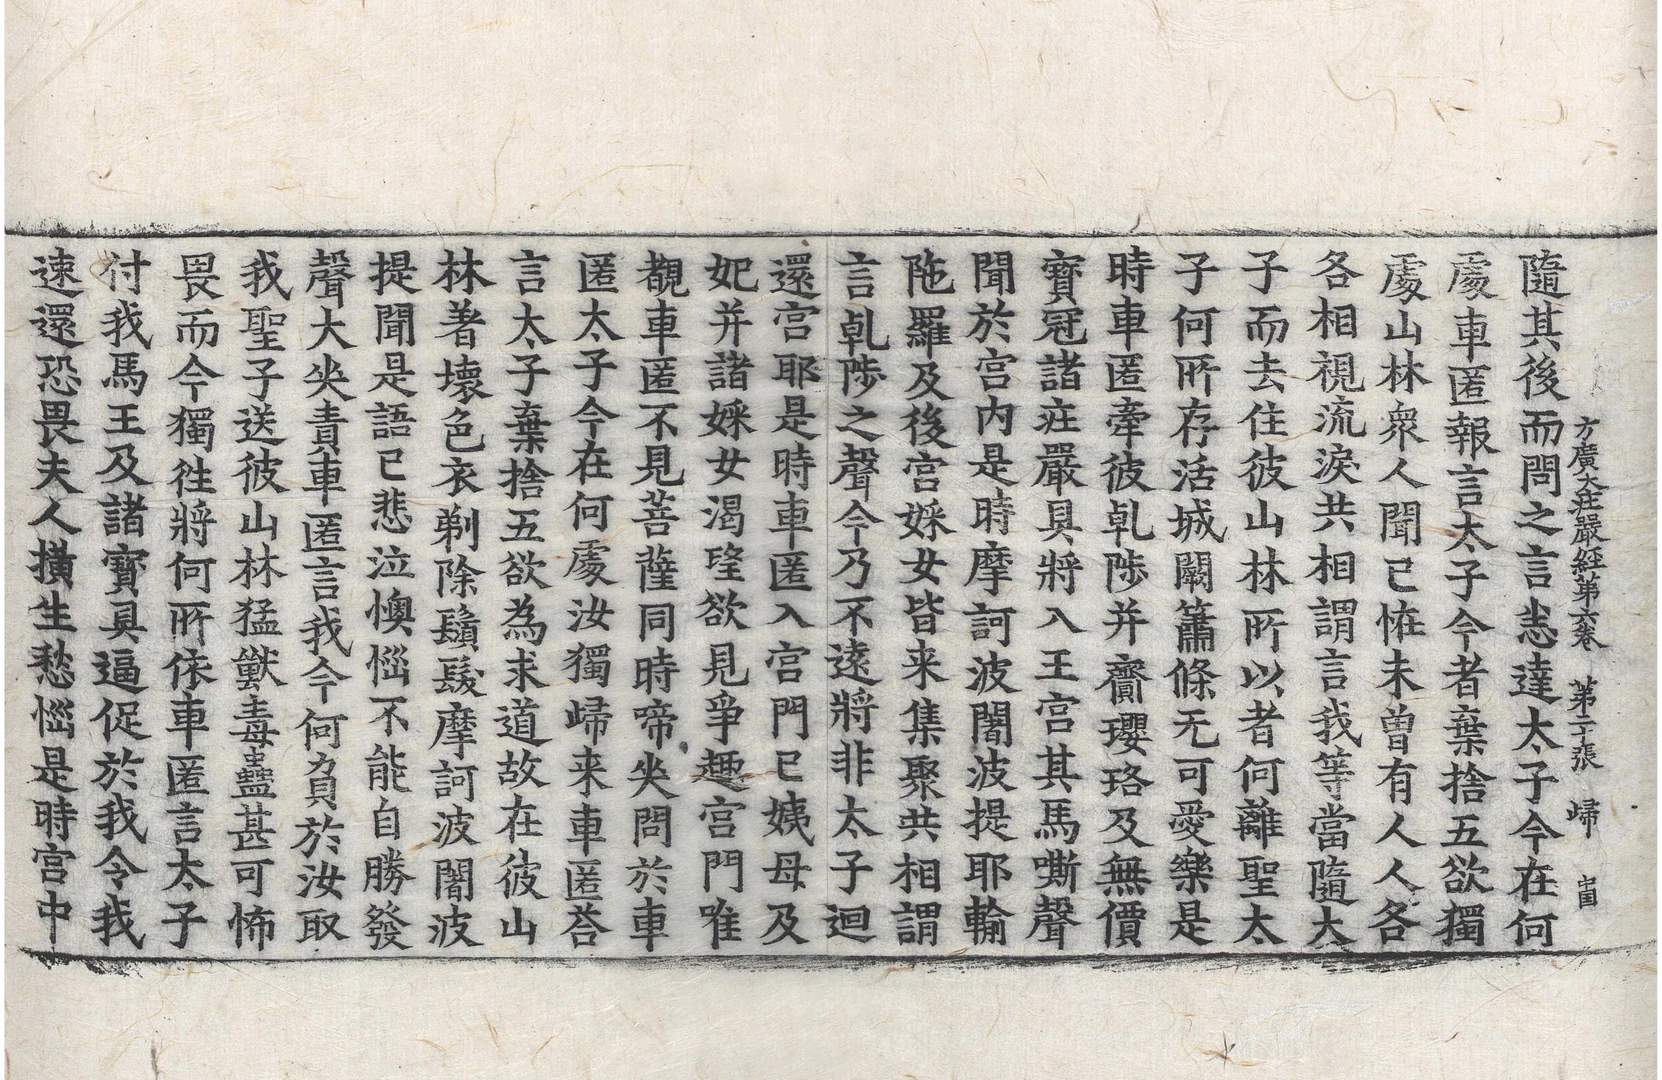 方廣大庄嚴經第六卷　第二十張　歸
隨其後而問之言悉達太子今在何
處車匿報言太子今者棄捨五欲獨
處山林衆人聞已恠未曾有人人各
各相視流淚共相謂言我等當隨大
子而去住彼山林所以者何離聖太
子何所存活城闕蕭條无可愛樂是
時車匿牽彼乹陟并齎瓔珞及無價
寳冠諸庄嚴具將入王宫其馬嘶聲
聞於宫内是時摩訶波闍波提耶輸
陁羅及後宫婇女皆来集聚共相謂
言乹陟之聲今乃不遠將非太子迴
還宫耶是時車匿入宫門已姨母及
妃并諸婇女渴望欲見爭趣宫門唯
覩車匿不見菩薩同時啼㖂問於車
匿太子今在何處汝獨歸来車匿荅
言太子棄捨五欲為求道故在彼山
林著壞色衣剃除鬚髮摩訶波闍波
提聞是語已悲泣懊惱不能自勝發
聲大㖂責車匿言我今何負於汝取
我聖子送彼山林猛獸毒蟲甚可怖
畏而今獨徃將何所依車匿言太子
付我馬王及諸寳具逼促於我令我
速還恐畏夫人橫生愁惱是時宫中